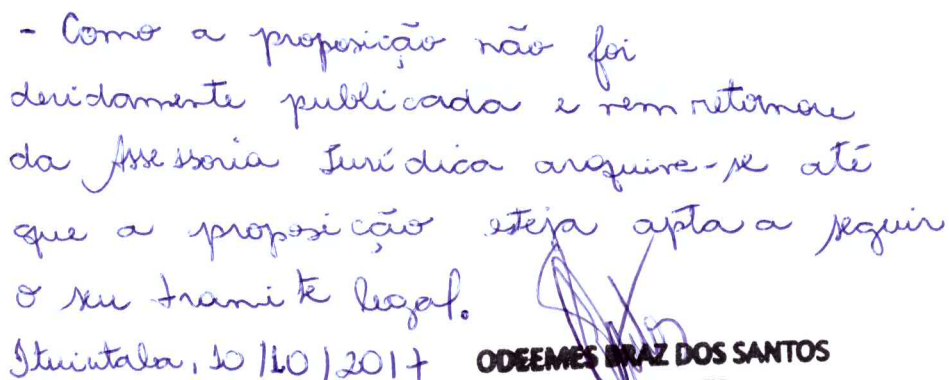 - Como a proposição não foi
devidamente publicada e nem retornou
da Assessoria Jurídica arquive-se até
que a proposição esteja apta a seguir
o seu tramite legal.
Ituiutaba, 10/10/2017 ODEEMES BRAZ DOS SANTOS